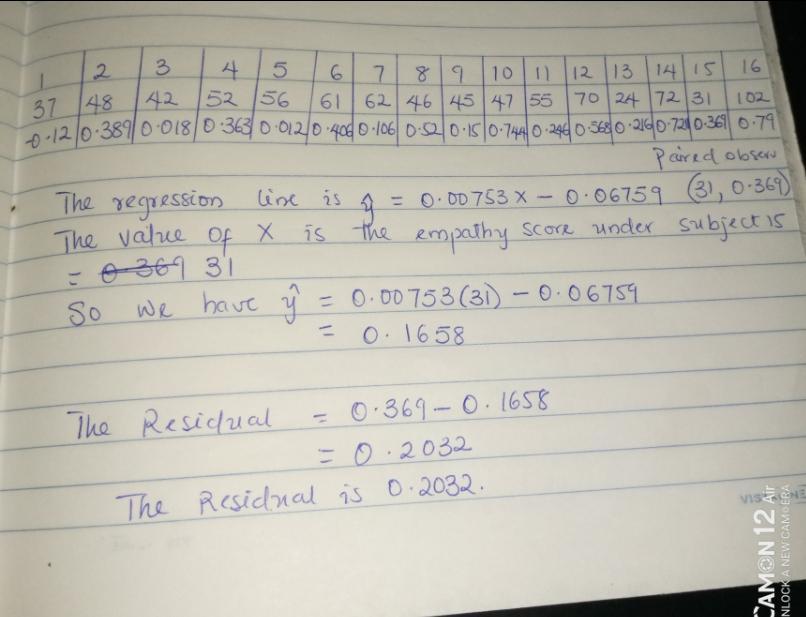 1 2 3 4 5 6 7 8 9 10 11 12 13 14 15 16
37 48 42 52 56 61 62 46 45 47 55 70 24 72 31 102
-0.12 0.389 0.018 0.363 0.012 0.406 0.106 0.52 0.15 0.744 0.246 0.568 0.216 0.721 0.369 0.79
Paired observ
The regression line is ŷ = 0.00753x - 0.06759 (31, 0.369)
The value of X is the empathy score under subject 15
= 0.369 31
So we have ŷ = 0.00753(31) - 0.06759
= 0.1658
The Residual = 0.369 - 0.1658
= 0.2032
The Residual is 0.2032.
CAMON 12 Air
NLOCK A NEW CAMERA